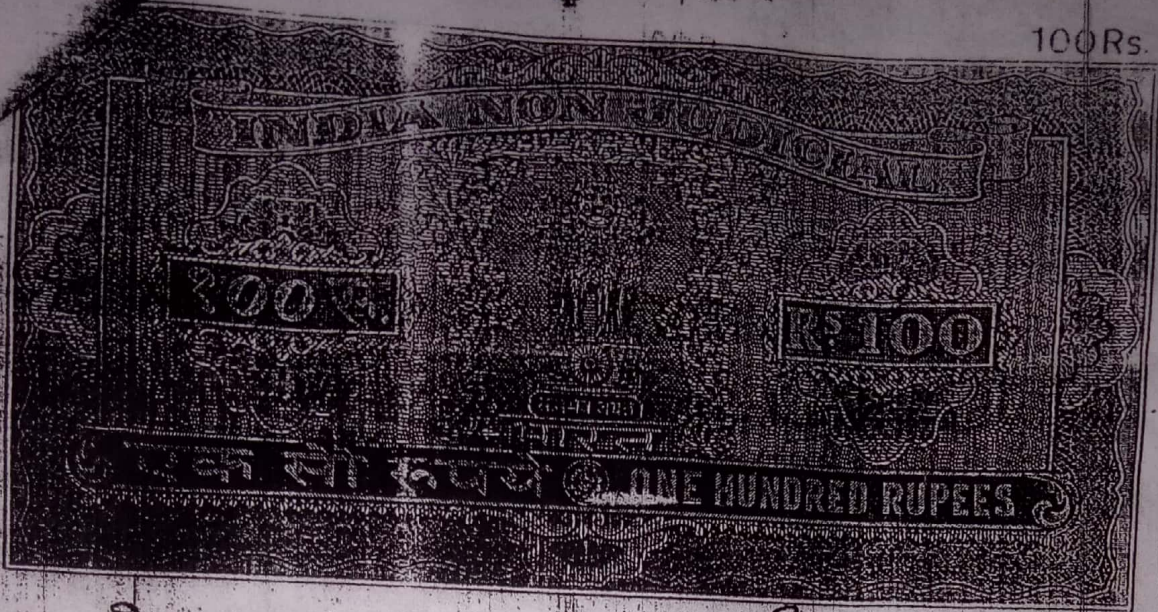 100Rs.
INDIA NON JUDICIAL
१०० रु.
Rs. 100
सत्यमेव जयते
भारत
एक सौ रुपये ONE HUNDRED RUPEES